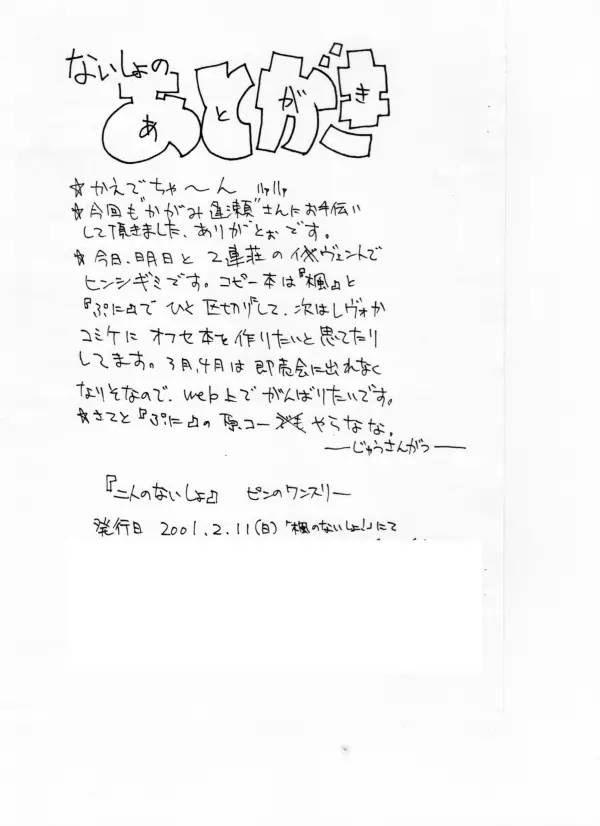 ないしょの
あとがき
☆かえでちゃ〜ん ハァハァ
☆今回も"かがみ逢瀬"さんにお手伝い
して頂きました、ありがとぉです。
☆今日、明日と 2連荘のイヴェントで
ヒンシギミです。コピー本は『楓』と
『ぷに』で ひと区切りして、次はレヴォか
コミケに オフセ本を作りたいと思てたり
してます。3月,4月は 即売会に出れなく
なりそなので、web上でがんばりたいです。
☆さてと『ぷに』の原コーもやらなな。
――じゅうさんがつ――
『二人のないしょ』 ピンのワンスリー
発行日 2001.2.11(日)「楓のないしょ!」にて